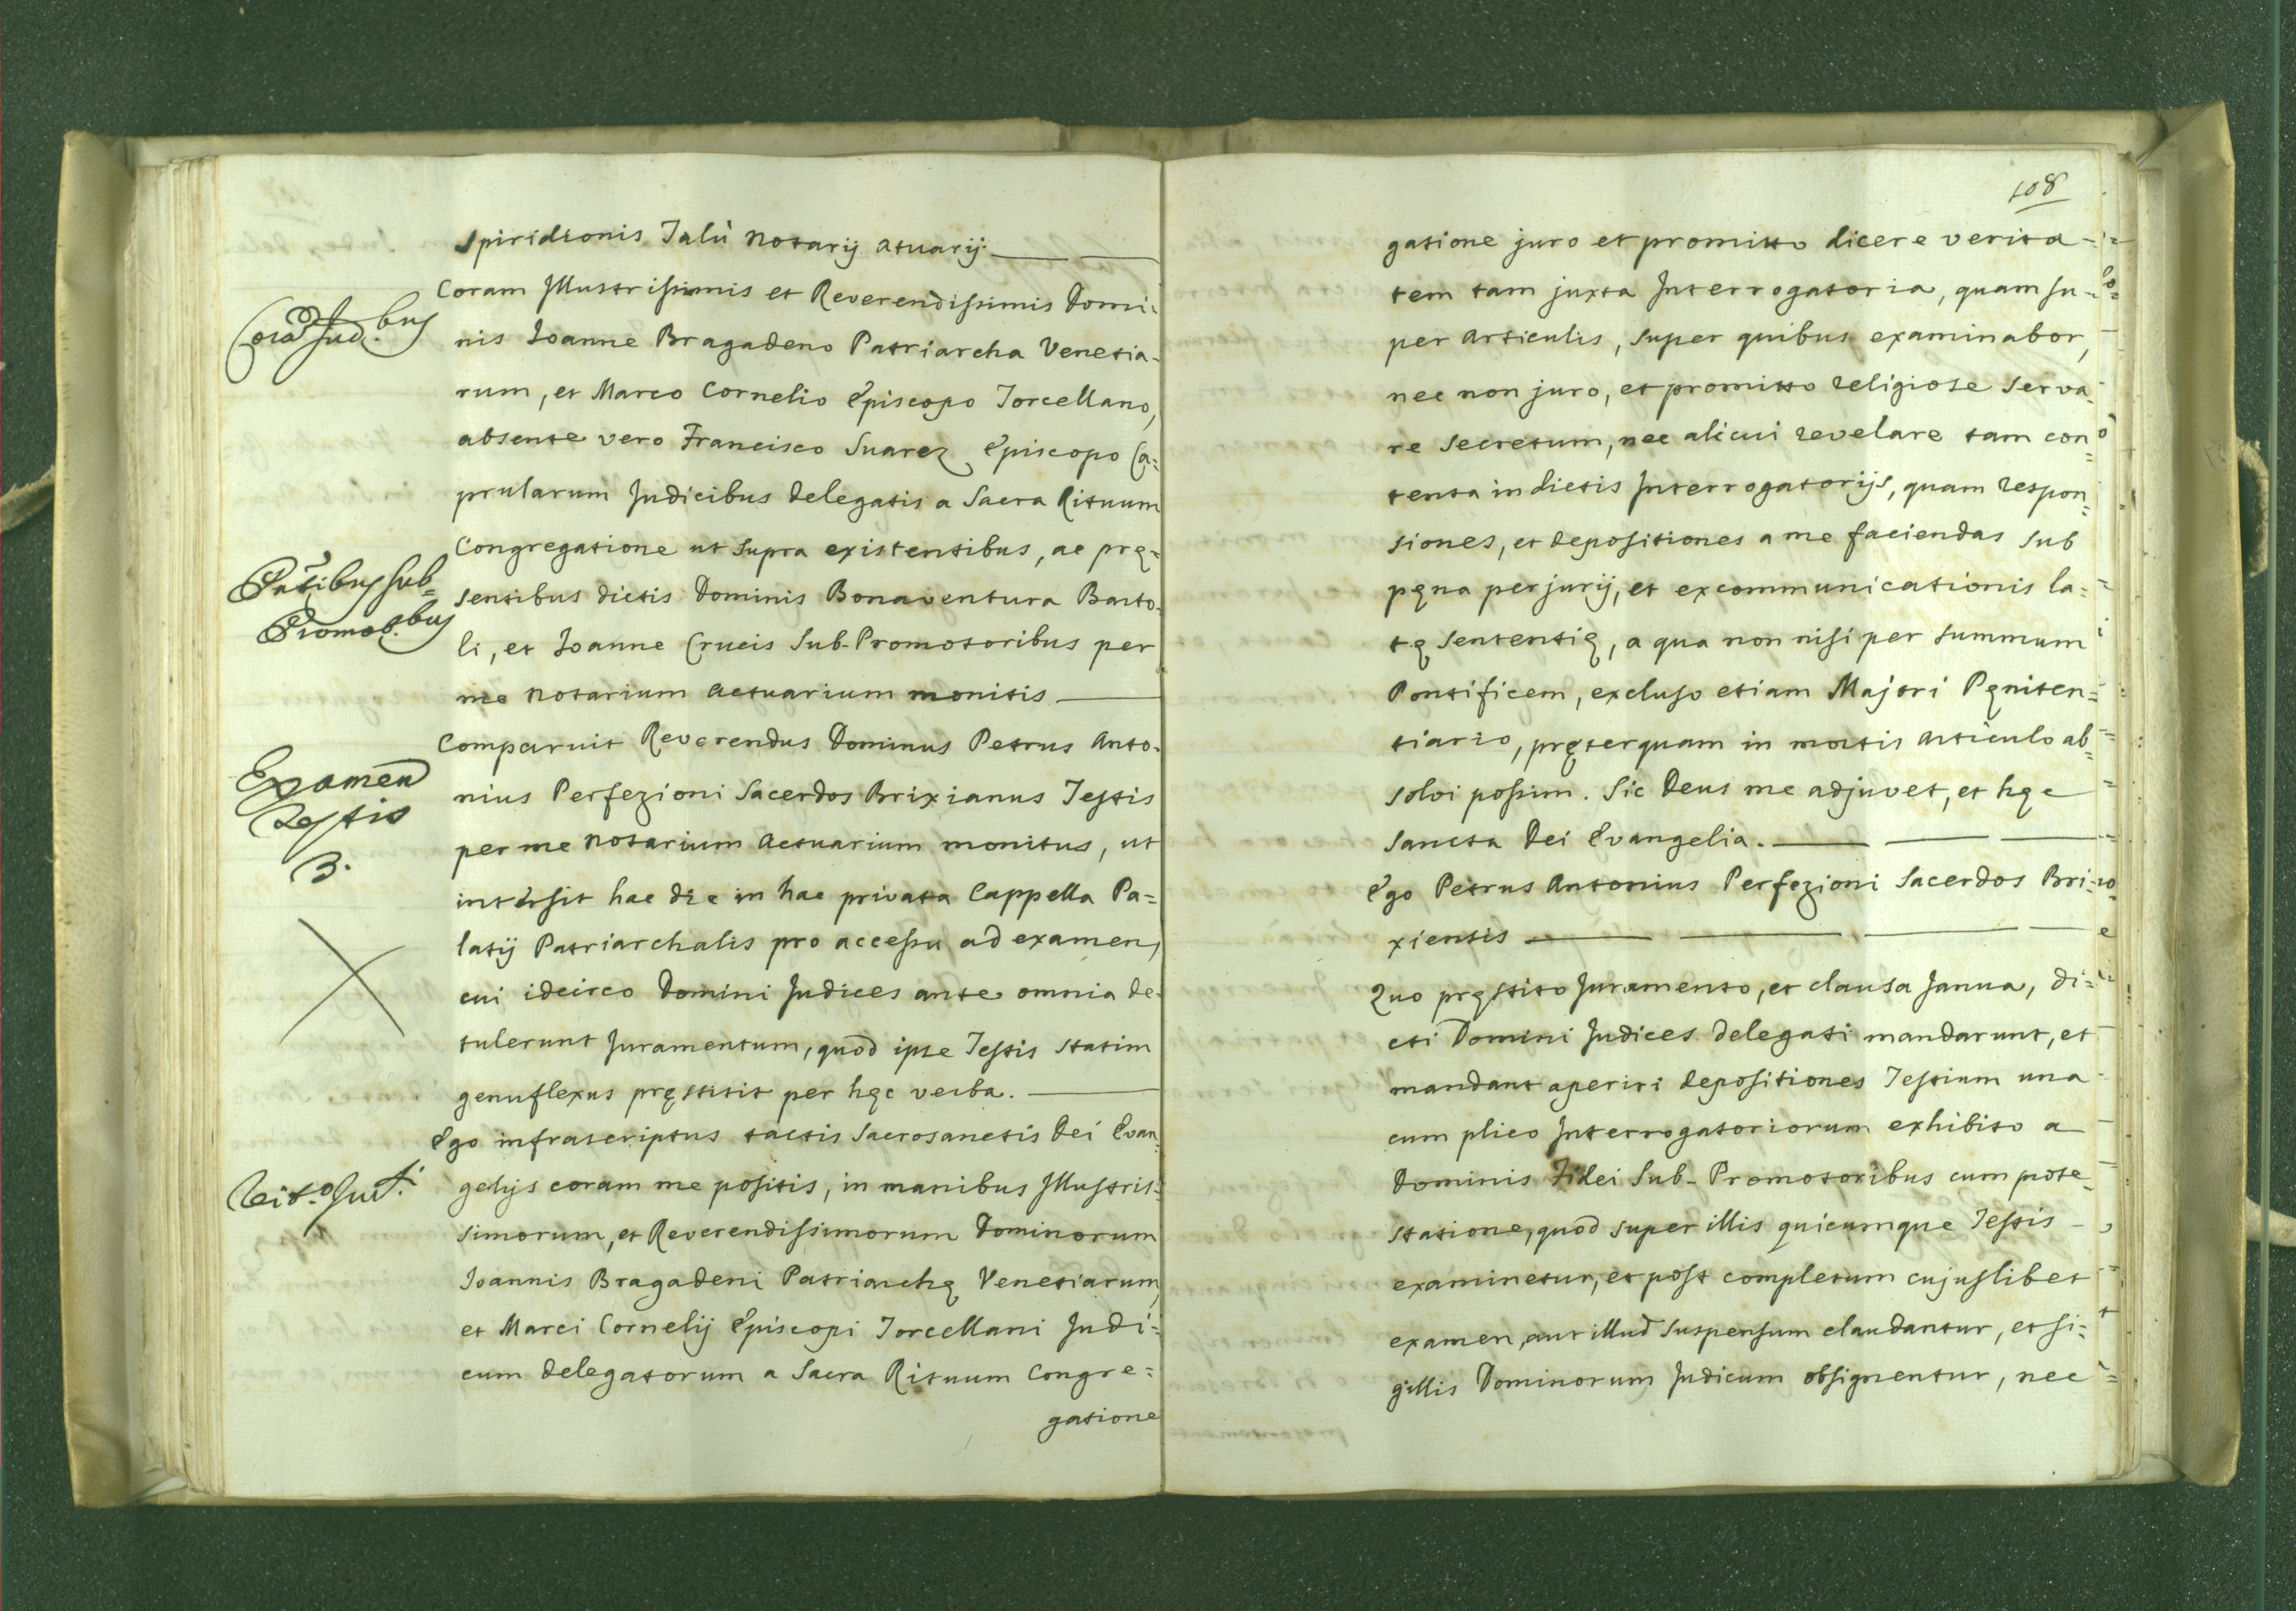 Spiridionis Talù Notarij Atuarij
Corã Jud.bus
Coram Illustrissimis et Reverendissimis Domi-
nis Joanne Bragadeno Patriarcha Venetia-
rum, et Marco Cornelio Episcopo Torcellano,
absente vero Francisco Suarez Episcopo Ca=
prularum Judicibus delegatis a Sacra Rituum
Congregatione ut supra existentibus, ac prę=
sentibus dictis Dominis Bonaventura Barto-
li, et Joanne Crucis Sub-Promotoribus per
me Notarium Actuarium monitis
Comparuit Reverendus Dominus Petrus Anto-
Examen
Testis
3.
nius Perfezioni Sacerdos Brixianus Testis
per me Notarium Actuarium monitus, ut
intersit hac die in hac privata Cappella Pa=
latij Patriarchalis pro accessu ad examen,
cui idcirco Domini Judices ante omnia de-
tulerunt Juramentum, quod ipse Testis statim
genuflexus pręstitit per hęc verba.
Ego infrascriptus tactis Sacrosanctis Dei Evan-
gelijs coram me positis, in manibus Illustris-
simorum, et Reverendissimorum Dominorum
Joannis Bragadeni Patriarchę Venetiarum,
et Marci Cornelij Episcopi Torcellani Judi=
cum delegatorum a Sacra Rituum Congre=
gatione
108
gatione juro et promitto dicere verita-
tem tam juxta Interrogatoria, quam su-
per Articulis, super quibus examinabor,
nec non juro, et promitto religiose serva-
re secretum, nec alicui revelare tam con=
tenta in dictis Interrogatorijs, quam respon=
siones, et depositiones a me faciendas sub
pęna perjurij, et excommunicationis la=
tę sententię, a qua non nisi per summum
Pontificem, excluso etiam Majori Pęniten=
tiario, pręterquam in mortis articulo ab=
solvi possim. Sic Deus me adjuvet, et hęc
Sancta Dei Evangelia.
Ego Petrus Antonius Perfezioni Sacerdos Bri-
xiensis
Quo pręstito Juramento, et clausa Janua, di=
cti Domini Judices delegati mandarunt, et
mandant aperiri depositiones Testium una
cum plico Interrogatoriorum exhibito a
Dominis Fidei Sub-Promotoribus cum prote-
statione, quod super illis quicumque Testis
examinetur, et post completum cujuslibet
examen, aut illud suspensum claudantur, et si=
gillis Dominorum Judicum obsignentur, nec